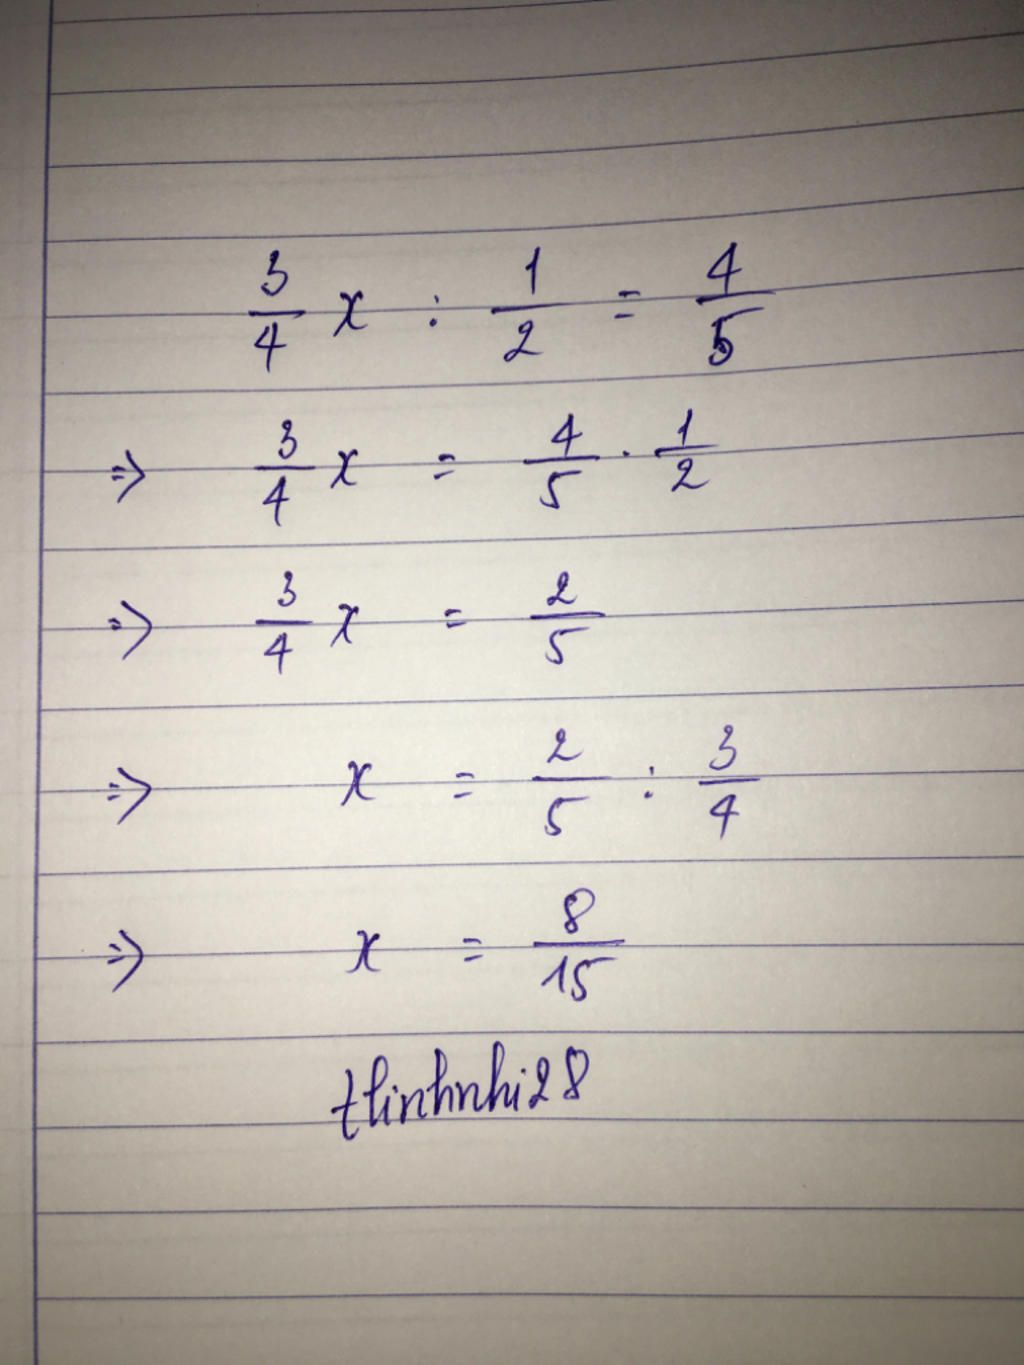 3/4 x : 1/2 = 4/5
⇒ 3/4 x = 4/5 . 1/2
⇒ 3/4 x = 2/5
⇒ x = 2/5 : 3/4
⇒ x = 8/15
tlinhnhi28